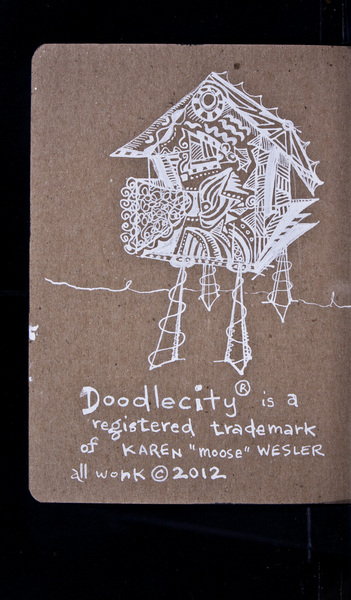 Doodlecity® is a
registered trademark
of KAREN "moose" WESLER
all work © 2012